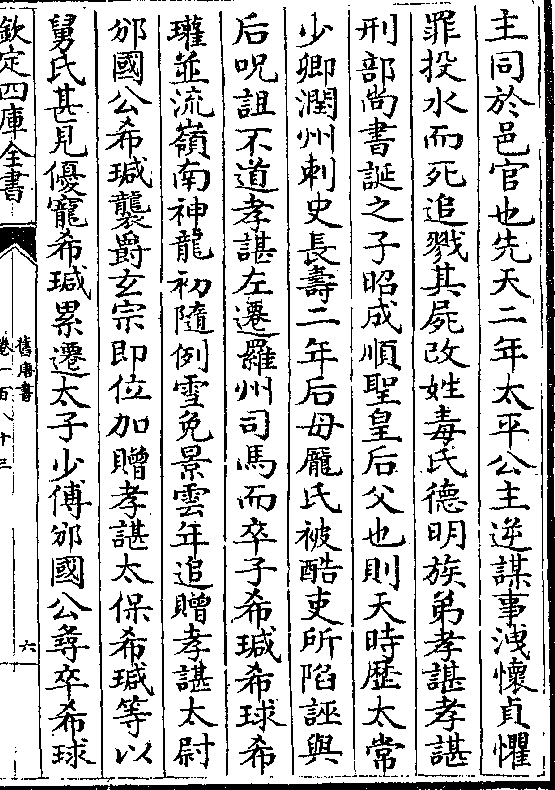 主同於邑官也先天二年太平公主逆謀事洩懷貞懼
罪投水而死追戮其屍改姓毒氏德明族弟孝諶孝諶
刑部尚書誕之子昭成順聖皇后父也則天時歴太常
少卿潤州刺史長壽二年后母龎氏被酷吏所陷誣與
后呪詛不道孝諶左遷羅州司馬而卒子希瑊希球希
瓘並流嶺南神龍初隨例雪免景雲年追贈孝諶太尉
邠國公希瑊襲爵玄宗即位加贈孝諶太保希瑊等以
舅氏甚見優寵希瑊累遷太子少傅邠國公尋卒希球
欽定四庫全書
舊唐書
卷一百八十三
六